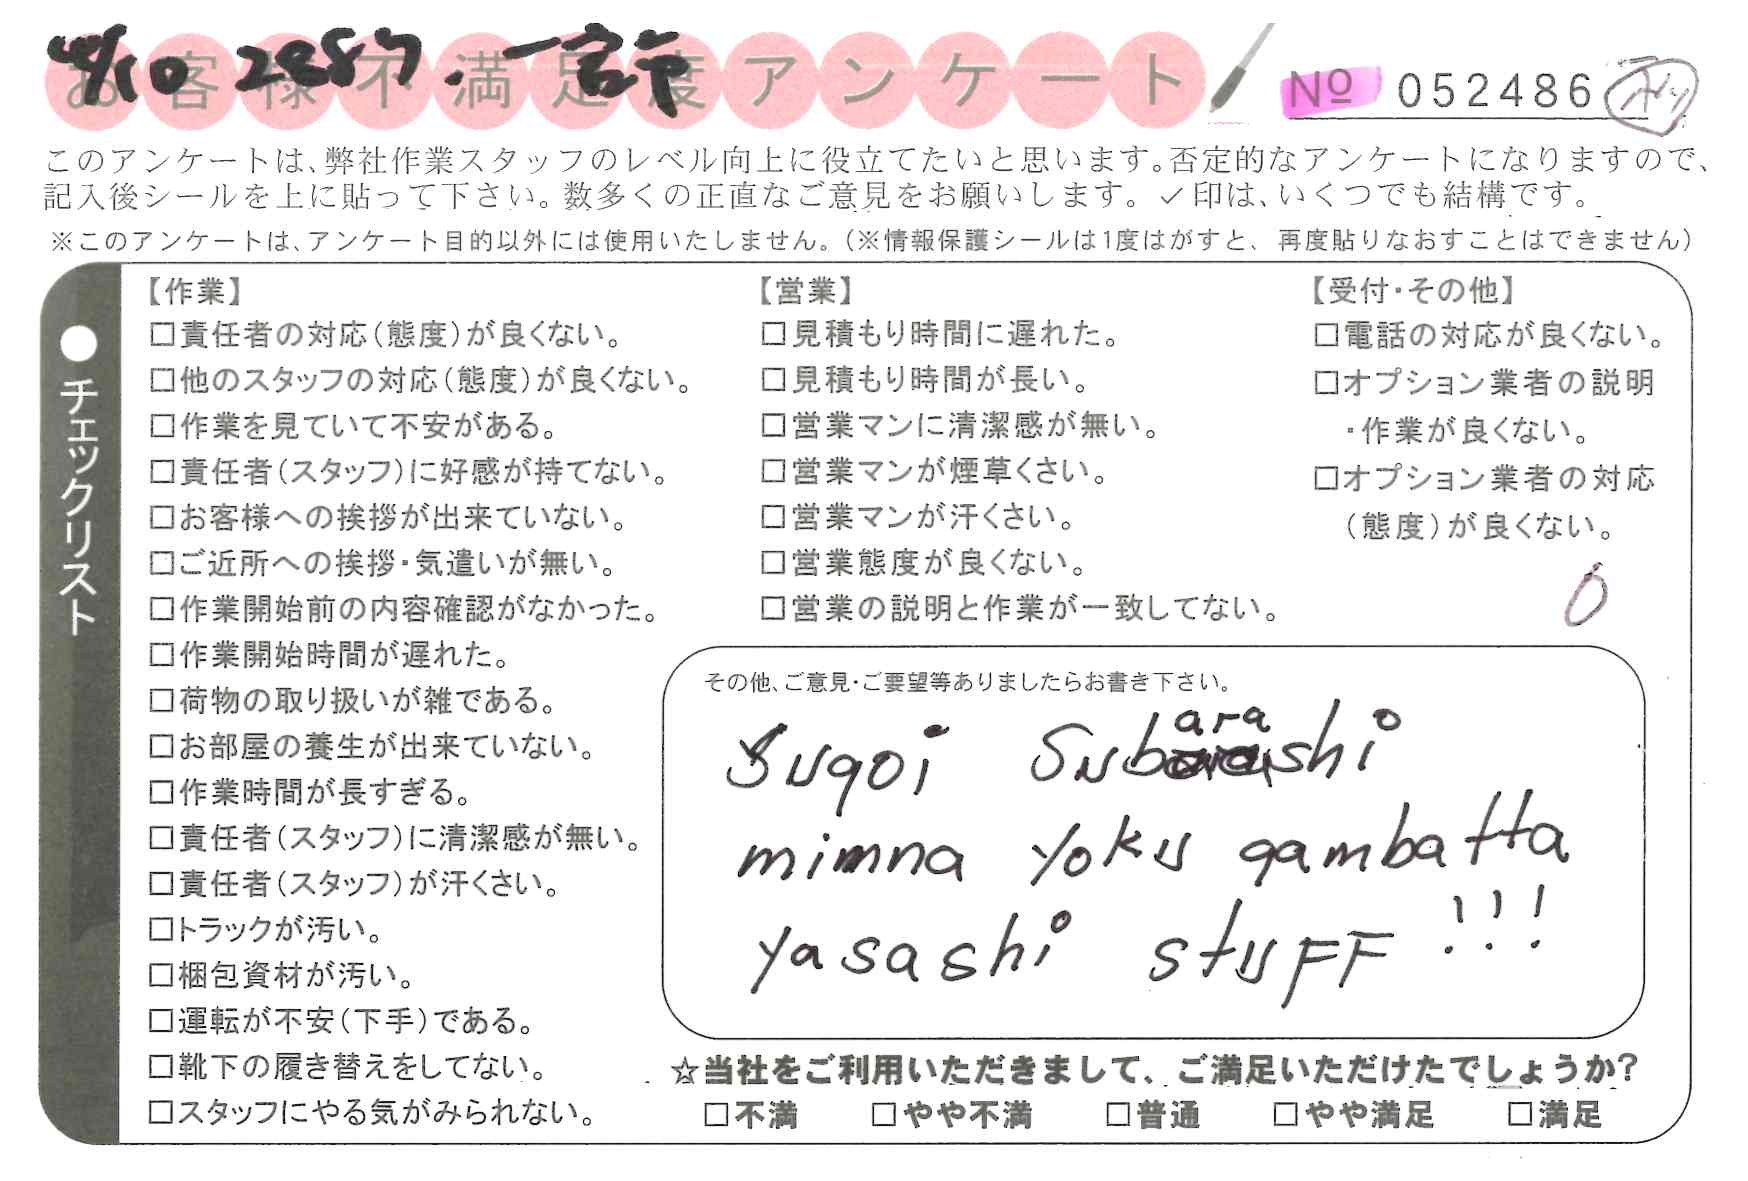 お客様不満足度アンケート
№ 052486
このアンケートは、弊社作業スタッフのレベル向上に役立てたいと思います。否定的なアンケートになりますので、
記入後シールを上に貼って下さい。数多くの正直なご意見をお願いします。✓印は、いくつでも結構です。
※このアンケートは、アンケート目的以外には使用いたしません。（※情報保護シールは1度はがすと、再度貼りなおすことはできません）
●チェックリスト
【作業】
□責任者の対応（態度）が良くない。
□他のスタッフの対応（態度）が良くない。
□作業を見ていて不安がある。
□責任者（スタッフ）に好感が持てない。
□お客様への挨拶が出来ていない。
□ご近所への挨拶・気遣いが無い。
□作業開始前の内容確認がなかった。
□作業開始時間が遅れた。
□荷物の取り扱いが雑である。
□お部屋の養生が出来ていない。
□作業時間が長すぎる。
□責任者（スタッフ）に清潔感が無い。
□責任者（スタッフ）が汗くさい。
□トラックが汚い。
□梱包資材が汚い。
□運転が不安（下手）である。
□靴下の履き替えをしてない。
□スタッフにやる気がみられない。
【営業】
□見積もり時間に遅れた。
□見積もり時間が長い。
□営業マンに清潔感が無い。
□営業マンが煙草くさい。
□営業マンが汗くさい。
□営業態度が良くない。
□営業の説明と作業が一致してない。
【受付・その他】
□電話の対応が良くない。
□オプション業者の説明
・作業が良くない。
□オプション業者の対応
（態度）が良くない。
0
その他、ご意見・ご要望等ありましたらお書き下さい。
Sugoi Subarashi
mimna yoku gambatta
yasashi stuFF !!!
☆当社をご利用いただきまして、ご満足いただけたでしょうか？
□不満 □やや不満 □普通 □やや満足 □満足